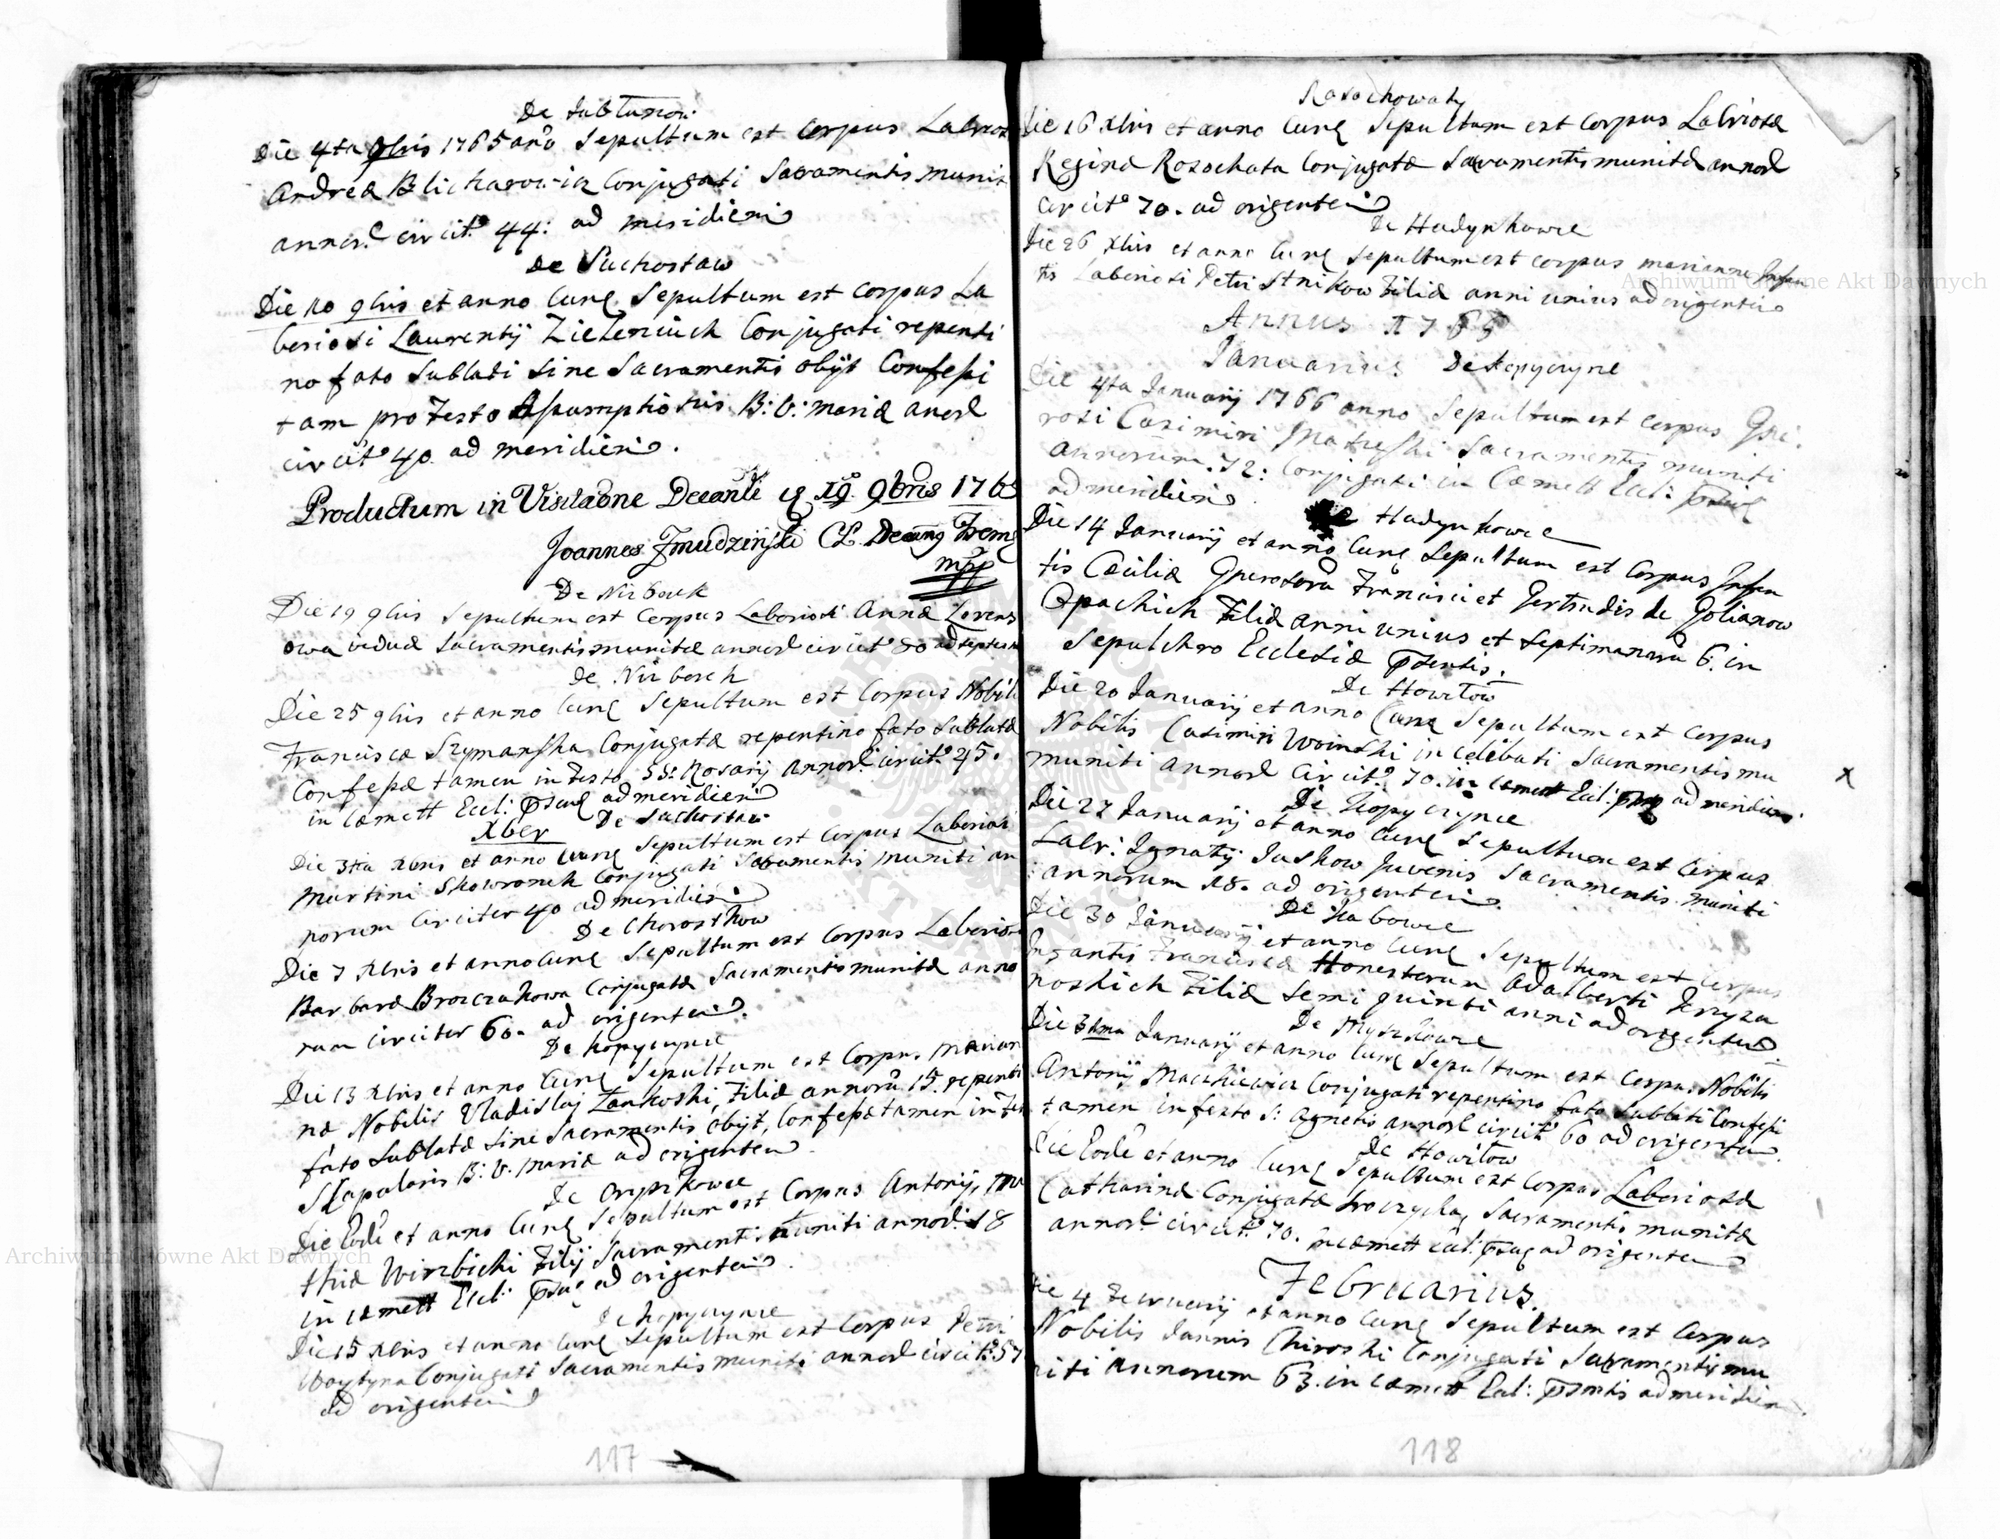 De Jabłunow
Die 4ta 9bris 1765 año Sepultum est Corpus Labrios
Andreæ Blicharowicz Conjugati Sacramentis munit
circit° 44: ad meridiem
De Suchostaw
Die 10 9bris et anno Curę Sepultum est Corpus La
boriosi Laurentij Zieleniuch Conjugati repenti
no fato Sublati Sine Sacramentis obijt Confessi
tam pro Festo Assumptionis B: V: Mariæ
circit° 40 ad meridiem.
Productum in Visitaõne Decanli 19 9bris 1765
Joannes Żmudziński Trem
mpp
De Nizborck
Die 19 9bris Sepultum est Corpus Laboriosi Annæ Lorens
owa viduæ Sacramentis munitæ circit° 80 ad
de Nizborch
Die 25 9bris et anno Curę Sepultum est Corpus Nobil
Franciscæ Szymanska Conjugatæ repentino fato Sublatæ
Confessæ tamen in Festo SS: Rosarij circit° 45.
in Cæmett Eccl: ad meridiem
Xber De Suchostaw
Die 3tia Xbris et anno Curę Sepultum est Corpus Laborios
Martini Skowronek Conjugati Sacramentis muniti an
norum circiter 40 ad meridiem
De Chorostkow
Die 7 Xbris et anno Curę Sepultum est Corpus Laborios
Barbaræ Broszczakowa Conjugatæ Sacramentis munitæ anno
rum circiter 60. ad origentem.
De Kopyczynce
Die 13 Xbris et anno Curę Sepultum est Corpus Marian
næ Nobilis Vladislaj Zankoski, Filiæ annorũ 15. repenti
fato Sublatæ Sine Sacramentis obijt, Confessæ tamen in Fes
Skapularis B: V: Mariæ ad origentem.
De Oryszkowce
Die Eodẽ et anno Curę Sepultum est Corpus Antonij, Ma
thiæ Wirzbicki Filij Sacrament: muniti 18
in Cæmett Eccl: ad origentem.
de Kopyczynce
Die 15 Xbris et anno Curę Sepultum est Corpus Petri
Woytyna Conjugati Sacramentis muniti circit: 57
ad origentem
117
Rosochowaty
Die 16 Xbris et anno Curę Sepultum est Corpus Labriosæ
Reginæ Rosochata Conjugatæ Sacramentis munitæ
Circit° 70. ad origentem
De Hadynkowce
Die 26 Xbris et anno Curę Sepultum est Corpus Marianne Infan
tis Laboriosi Petri Strikow Filiæ anni unius ad origentem
Annus 17
Januarius De Kopyczyne
Die 4ta Januarij 1766 anno Sepultum est Corpus Gne:
rosi Casimiri Sacramentis muniti
annorum. 72: Conjugati in Cæmett Eccl:
ad meridiem
De Hadynkowce
Die 14 Januarij et anno Curę Sepultum est Corpus Infan
tis Cæciliæ Gnerosorũ Francisci et Gertrudis de Golianow
Opackich Filiæ anni unius et Septimanarũ 6. in
Sepulchro Ecclesiæ
De Howiłow
Die 20 Januarij et anno Curę Sepultum est Corpus
Nobilis Casimiri Woinski in Celibati Sacramentis mu
muniti Circit° 70. in Cæmett Eccl: ad meridiem
De Kopyczynce
Die 27 Januarij et anno Curę Sepultum est Corpus
Labr: Ignatij Juskow Juvenis Sacramentis muniti
annorum 18. ad origentem.
De Habowce
Die 30 Januarij et anno Curę Sepultum est Corpus
Infantis Franciscæ Honestorum Adalberti Krzyza
noskich Filiæ Semi quinti anni ad origentem
De Myszkowce
Die 31ma Januarij et anno Curę Sepultum est Corpus Nobilis
Antonij Mackiewicz Conjugati repentino fato Sublati Confessi
tamen in festo S: Agnetis circit° 60 ad origentem.
De Howiłow
Die Eodẽ et anno Curę Sepultum est Corpus Laboriosæ
Catharinæ Conjugatæ Sacramentis munitæ
circit° 70. in Cæmett Eccl: ad origentem
Februarius.
Die 4 Februarij et anno Curę Sepultum est Corpus
Nobilis Jannis Chiroski Conjugati Sacramentis mu
niti annorum 63. in Cæmett Eccl: ad meridiem.
118
Archiwum Główne Akt Dawnych
Archiwum Główne Akt Dawnych